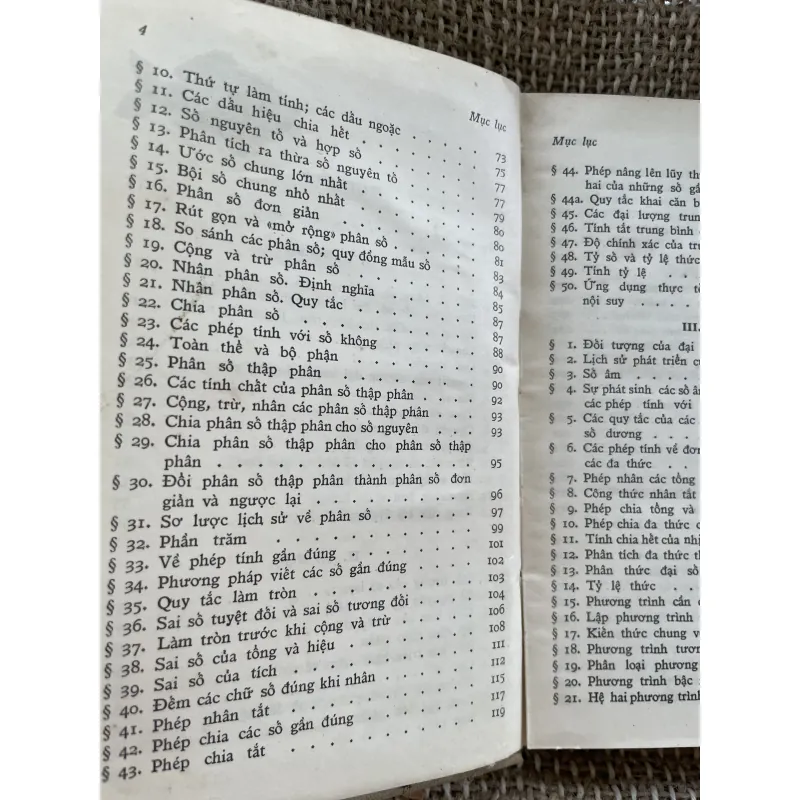 4
Mục lục
§ 10. Thứ tự làm tính; các dấu ngoặc . . . . . 73
§ 11. Các dấu hiệu chia hết . . . . . . . 75
§ 12. Số nguyên tố và hợp số . . . . . . 77
§ 13. Phân tích ra thừa số nguyên tố . . . . 77
§ 14. Ước số chung lớn nhất . . . . . . 79
§ 15. Bội số chung nhỏ nhất . . . . . . 80
§ 16. Phân số đơn giản . . . . . . . 80
§ 17. Rút gọn và «mở rộng» phân số . . . . 81
§ 18. So sánh các phân số; quy đồng mẫu số . . . 83
§ 19. Cộng và trừ phân số . . . . . . . 84
§ 20. Nhân phân số. Định nghĩa . . . . . 85
§ 21. Nhân phân số. Quy tắc . . . . . . 87
§ 22. Chia phân số . . . . . . . . . 87
§ 23. Các phép tính với số không . . . . . 88
§ 24. Toàn thể và bộ phận . . . . . . . 90
§ 25. Phân số thập phân . . . . . . . 90
§ 26. Các tính chất của phân số thập phân . . . . 92
§ 27. Cộng, trừ, nhân các phân số thập phân . . . 93
§ 28. Chia phân số thập phân cho số nguyên . . . 93
§ 29. Chia phân số thập phân cho phân số thập
phân . . . . . . . . . . . 95
§ 30. Đổi phân số thập phân thành phân số đơn
giản và ngược lại . . . . . . . 96
§ 31. Sơ lược lịch sử về phân số . . . . . 97
§ 32. Phần trăm . . . . . . . . . 99
§ 33. Về phép tính gần đúng . . . . . . 101
§ 34. Phương pháp viết các số gần đúng . . . . 102
§ 35. Quy tắc làm tròn . . . . . . . . 103
§ 36. Sai số tuyệt đối và sai số tương đối . . . . 104
§ 37. Làm tròn trước khi cộng và trừ . . . . 106
§ 38. Sai số của tổng và hiệu . . . . . . 108
§ 39. Sai số của tích . . . . . . . . 111
§ 40. Đếm các chữ số đúng khi nhân . . . . . 112
§ 41. Phép nhân tắt . . . . . . . . 115
§ 42. Phép chia các số gần đúng . . . . . 117
§ 43. Phép chia tắt . . . . . . . . . 119
Mục lục
§ 44. Phép nâng lên lũy th
hai của những số gầ
§ 44a. Quy tắc khai căn b
§ 45. Các đại lượng trun
§ 46. Tính tắt trung bình c
§ 47. Độ chính xác của tr
§ 48. Tỷ số và tỷ lệ thức
§ 49. Tính tỷ lệ . . .
§ 50. Ứng dụng thực t
nội suy . . . .
III.
§ 1. Đối tượng của đại
§ 2. Lịch sử phát triển c
§ 3. Số âm . . . .
§ 4. Sự phát sinh các số â
các phép tính với
§ 5. Các quy tắc của các
số dương . . . .
§ 6. Các phép tính về đơn
các đa thức . .
§ 7. Phép nhân các tổng
§ 8. Công thức nhân tắt
§ 9. Phép chia tổng và
§ 10. Phép chia đa thức c
§ 11. Tính chia hết của nhị
§ 12. Phân tích đa thức th
§ 13. Phân thức đại số
§ 14. Tỷ lệ thức . .
§ 15. Phương trình cần
§ 16. Lập phương trình
§ 17. Kiến thức chung v
§ 18. Phương trình tươn
§ 19. Phân loại phương
§ 20. Phương trình bậc
§ 21. Hệ hai phương trình